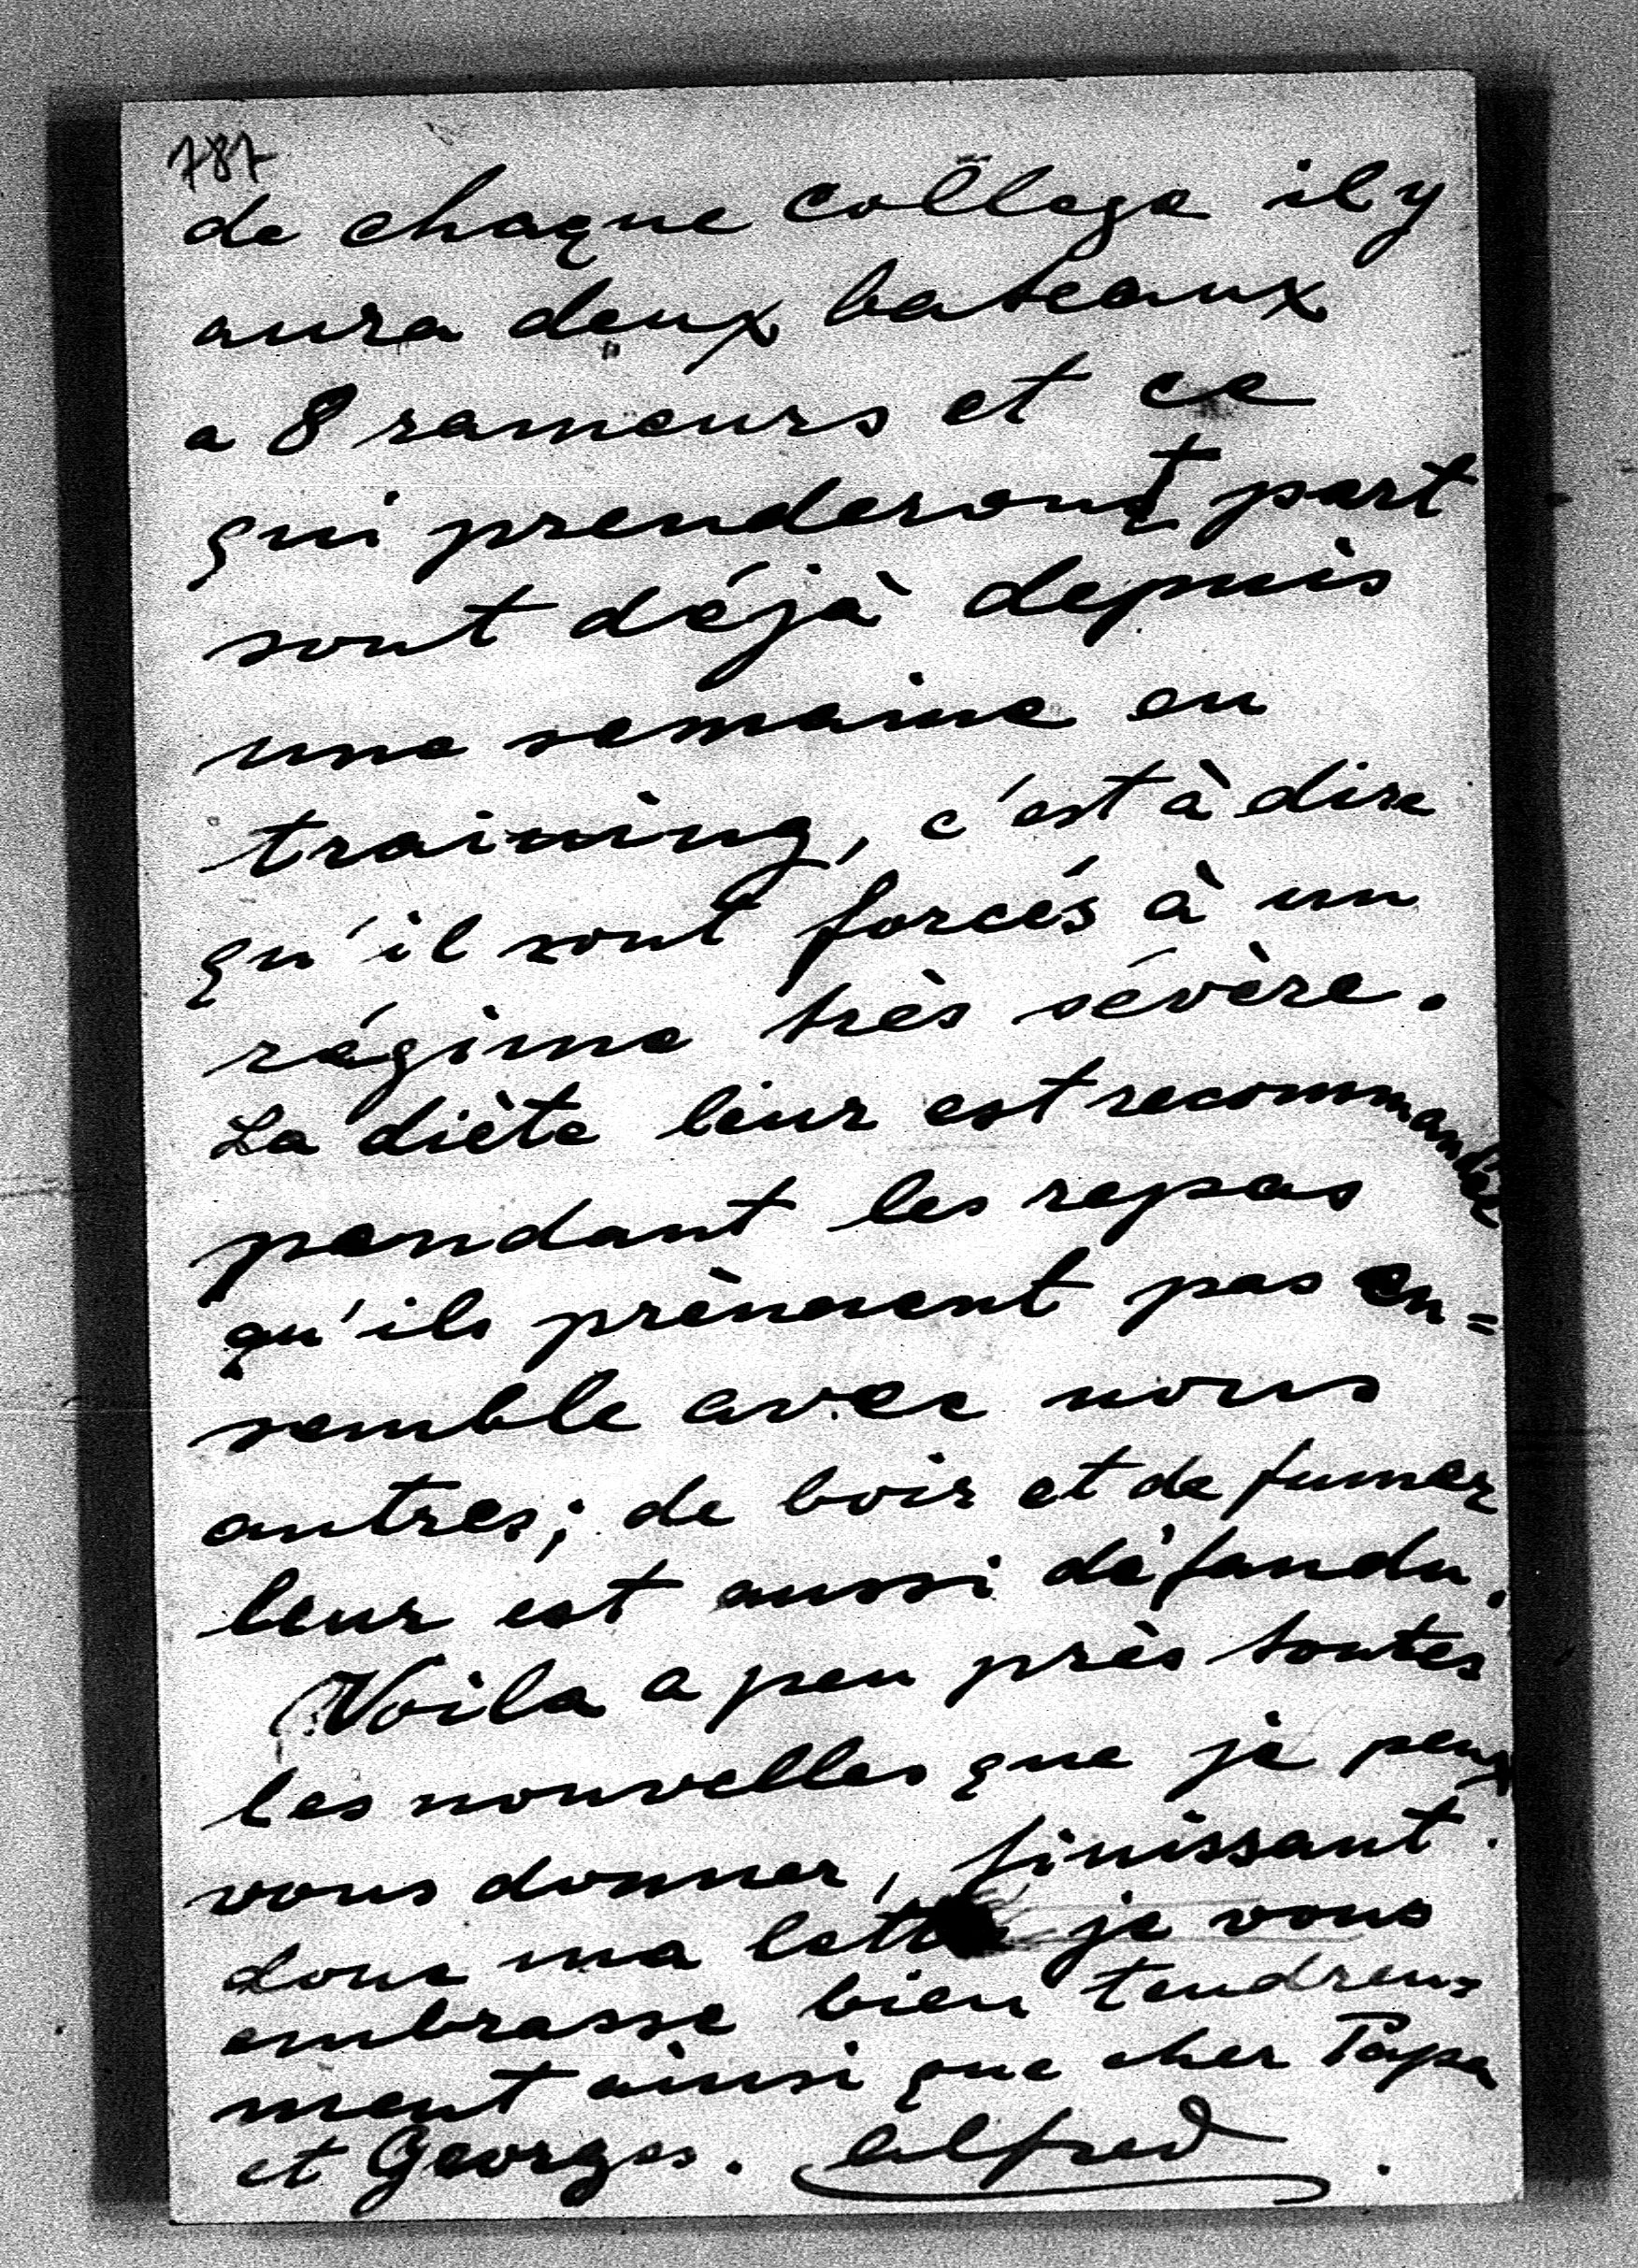 787
de chaque college il y
aura deux bateaux
a 8 rameurs et ce
qui prenderont part
sont déjà depuis
une semaine en
training, c'est à dire
qu'il sont forcés à un
régime très sévère.
La diète leur est recommandée
pendant les repas
qu'ils prènnent pas en=
semble avec nous
autres; de boir et de fumer
leur est aussi défandu.
Voila a peu près toutes
les nouvelles que je peux
vous donner, finissant
donc ma lettre je vous
embrasse bien tendreux
ment ainsi que cher Papa
et Georges. Alfred